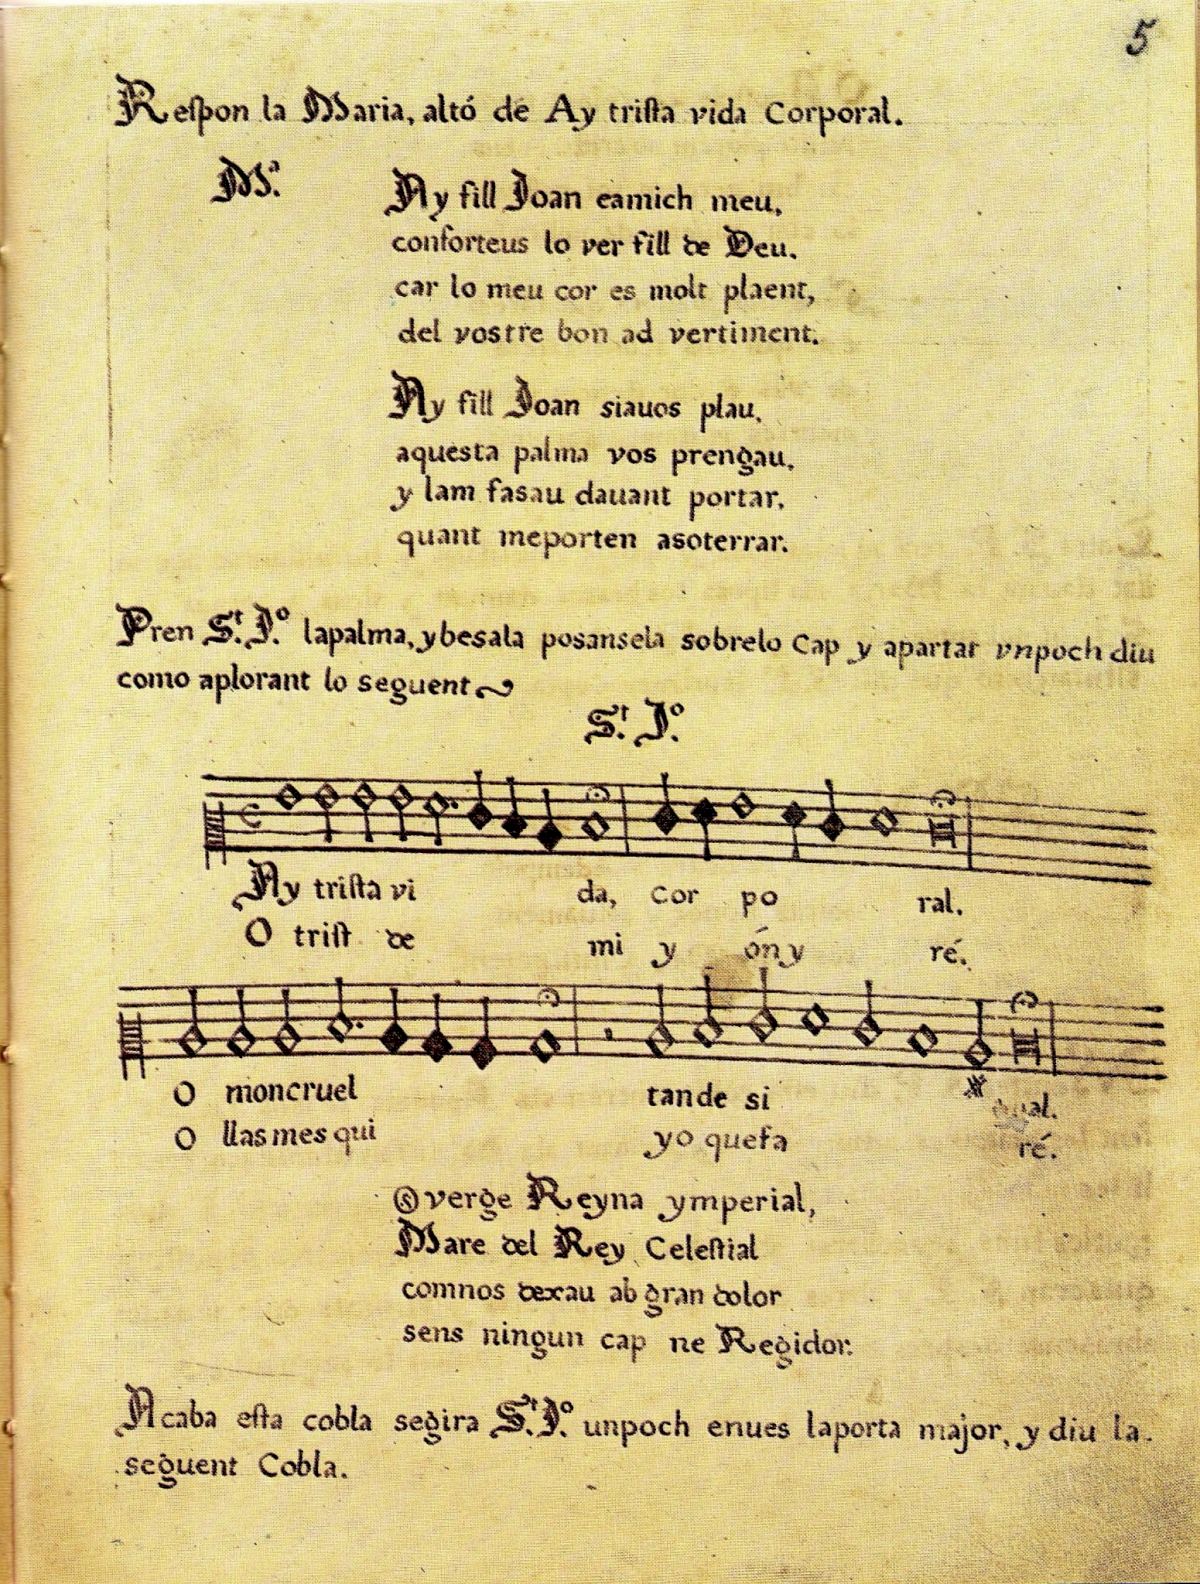 5
Respon la Maria, altó de Ay trista vida Corporal.
Mª.
Ay fill Joan eamich meu,
conforteus lo ver fill de Deu.
car lo meu cor es molt plaent,
del vostre bon ad vertiment.
Ay fill Joan siauos plau,
aquesta palma vos prengau,
y lam fasau dauant portar,
quant meporten asoterrar.
Pren S.t J.º lapalma, ybesala posansela sobrelo Cap y apartat vnpoch diu
como aplorant lo seguent
S.t J.º
Ay trista vi da, cor po ral.
O trist de mi y ón y ré.
O moncruel tande si gual.
O llas mes qui yo quefa ré.
O verge Reyna ymperial,
Mare del Rey Celestial
comnos dexau ab gran dolor
sens ningun cap ne Regidor.
Acaba esta cobla segira S.t J.º unpoch enues laporta major, y diu la
seguent Cobla.